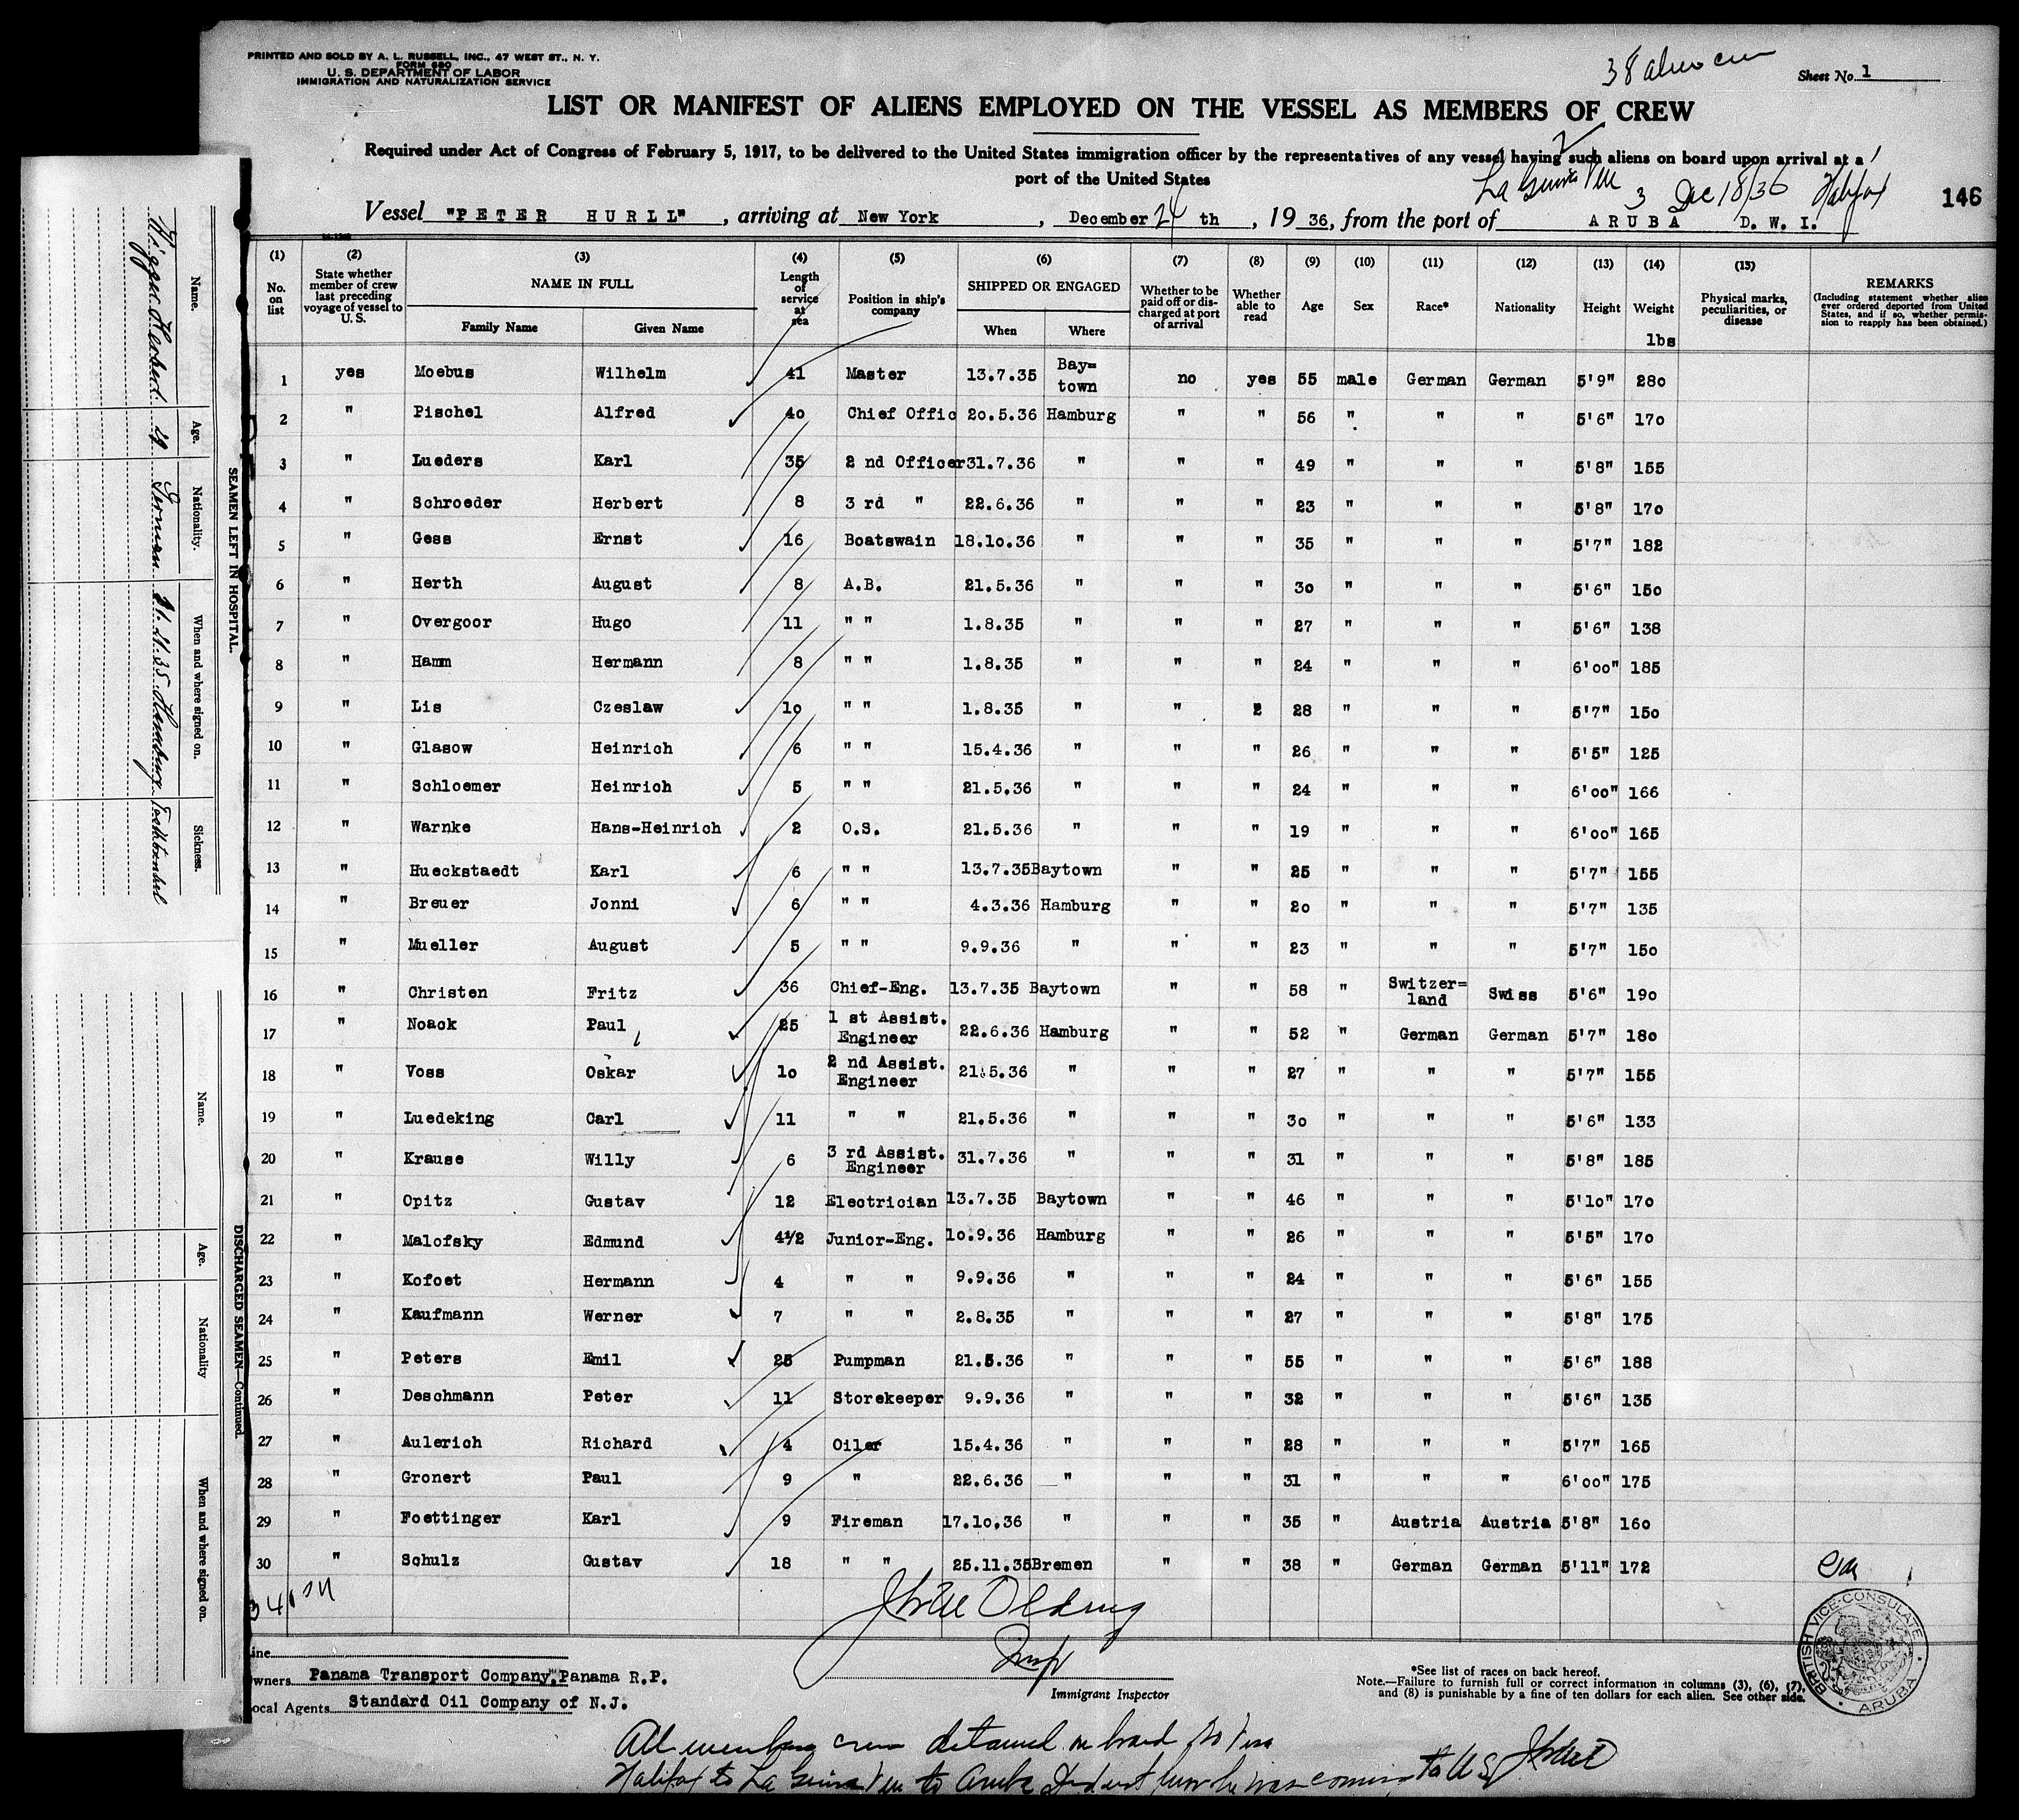 PRINTED AND SOLD BY A. L. RUSSELL, INC., 47 WEST ST., N. Y.
FORM 680
U. S. DEPARTMENT OF LABOR
IMMIGRATION AND NATURALIZATION SERVICE
38 alien crew
Sheet No. 1
LIST OR MANIFEST OF ALIENS EMPLOYED ON THE VESSEL AS MEMBERS OF CREW
Required under Act of Congress of February 5, 1917, to be delivered to the United States immigration officer by the representatives of any vessel having such aliens on board upon arrival at a
port of the United States
La Guira Ven 3 Dec 18/36 Halifax
146
Vessel "PETER HURLL", arriving at New York, December 24 th, 19 36, from the port of ARUBA D. W. I.
(1) No. on list (2) State whether member of crew last preceding voyage of vessel to U. S. (3) NAME IN FULL Family Name Given Name (4) Length of service at sea (5) Position in ship's company (6) SHIPPED OR ENGAGED When Where (7) Whether to be paid off or discharged at port of arrival (8) Whether able to read (9) Age (10) Sex (11) Race* (12) Nationality (13) Height (14) Weight lbs (15) Physical marks, peculiarities, or disease REMARKS (Including statement whether alien ever ordered deported from United States, and if so, whether permission to reapply has been obtained.)
1 yes Moebus Wilhelm 41 Master 13.7.35 Bay=town no yes 55 male German German 5'9" 280
2 " Pischel Alfred 40 Chief Offic 20.5.36 Hamburg " " 56 " " " 5'6" 170
3 " Lueders Karl 35 2 nd Officer 31.7.36 " " " 49 " " " 5'8" 155
4 " Schroeder Herbert 8 3 rd " 22.6.36 " " " 23 " " " 5'8" 170
5 " Gess Ernst 16 Boatswain 18.10.36 " " " 35 " " " 5'7" 182
6 " Herth August 8 A.B. 21.5.36 " " " 30 " " " 5'6" 150
7 " Overgoor Hugo 11 " " 1.8.35 " " " 27 " " " 5'6" 138
8 " Hamm Hermann 8 " " 1.8.35 " " " 24 " " " 6'00" 185
9 " Lis Czeslaw 10 " " 1.8.35 " " 2 28 " " " 5'7" 150
10 " Glasow Heinrich 6 " " 15.4.36 " " " 26 " " " 5'5" 125
11 " Schloemer Heinrich 5 " " 21.5.36 " " " 24 " " " 6'00" 166
12 " Warnke Hans-Heinrich 2 O.S. 21.5.36 " " " 19 " " " 6'00" 165
13 " Hueckstaedt Karl 6 " " 13.7.35 Baytown " " 25 " " " 5'7" 155
14 " Breuer Jonni 6 " " 4.3.36 Hamburg " " 20 " " " 5'7" 135
15 " Mueller August 5 " " 9.9.36 " " " 23 " " " 5'7" 150
16 " Christen Fritz 36 Chief-Eng. 13.7.35 Baytown " " 58 " Switzer=land Swiss 5'6" 190
17 " Noack Paul 25 1 st Assist. Engineer 22.6.36 Hamburg " " 52 " German German 5'7" 180
18 " Voss Oskar 10 2 nd Assist. Engineer 21.5.36 " " " 27 " " " 5'7" 155
19 " Luedeking Carl 11 " " 21.5.36 " " " 30 " " " 5'6" 133
20 " Krause Willy 6 3 rd Assist. Engineer 31.7.36 " " " 31 " " " 5'8" 185
21 " Opitz Gustav 12 Electrician 13.7.35 Baytown " " 46 " " " 5'10" 170
22 " Malofsky Edmund 4½ Junior-Eng. 10.9.36 Hamburg " " 26 " " " 5'5" 170
23 " Kofoet Hermann 4 " " 9.9.36 " " " 24 " " " 5'6" 155
24 " Kaufmann Werner 7 " " 2.8.35 " " " 27 " " " 5'8" 175
25 " Peters Emil 25 Pumpman 21.5.36 " " " 55 " " " 5'6" 188
26 " Deschmann Peter 11 Storekeeper 9.9.36 " " " 32 " " " 5'6" 135
27 " Aulerich Richard 4 Oiler 15.4.36 " " " 28 " " " 5'7" 165
28 " Gronert Paul 9 " 22.6.36 " " " 31 " " " 6'00" 175
29 " Foettinger Karl 9 Fireman 17.10.36 " " " 35 " Austria Austria 5'8" 160
30 " Schulz Gustav 18 " " 25.11.35 Bremen " " 38 " German German 5'11" 172
Line
Owners Panama Transport Company, Panama R.P.
Local Agents Standard Oil Company of N.J.
Immigrant Inspector
*See list of races on back hereof.
Note.—Failure to furnish full or correct information in columns (3), (6), (7), and (8) is punishable by a fine of ten dollars for each alien. See other side.
BRITISH VICE-CONSULATE ARUBA
All members crew detained on board
Halifax to La Guira Ven to Aruba to U S
SEAMEN LEFT IN HOSPITAL.
Name. Age. Nationality. When and where signed on. Sickness.
Herbert 19 German 21.11.35 Hamburg
DISCHARGED SEAMEN—Continued.
Name. Age. Nationality When and where signed on.